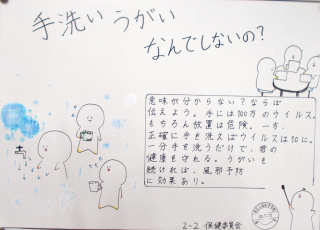 手洗い うがい
なんでしないの?
意味が分からない?ならば
伝えよう。手には100万のウイルス。
もちろん放置は危険。一方、
正確に手を洗えばウイルスは10に。
一分手を洗うだけで、君の
健康を守れる。うがいも
続ければ、風邪予防
に効果あり。
2-2 保健委員会